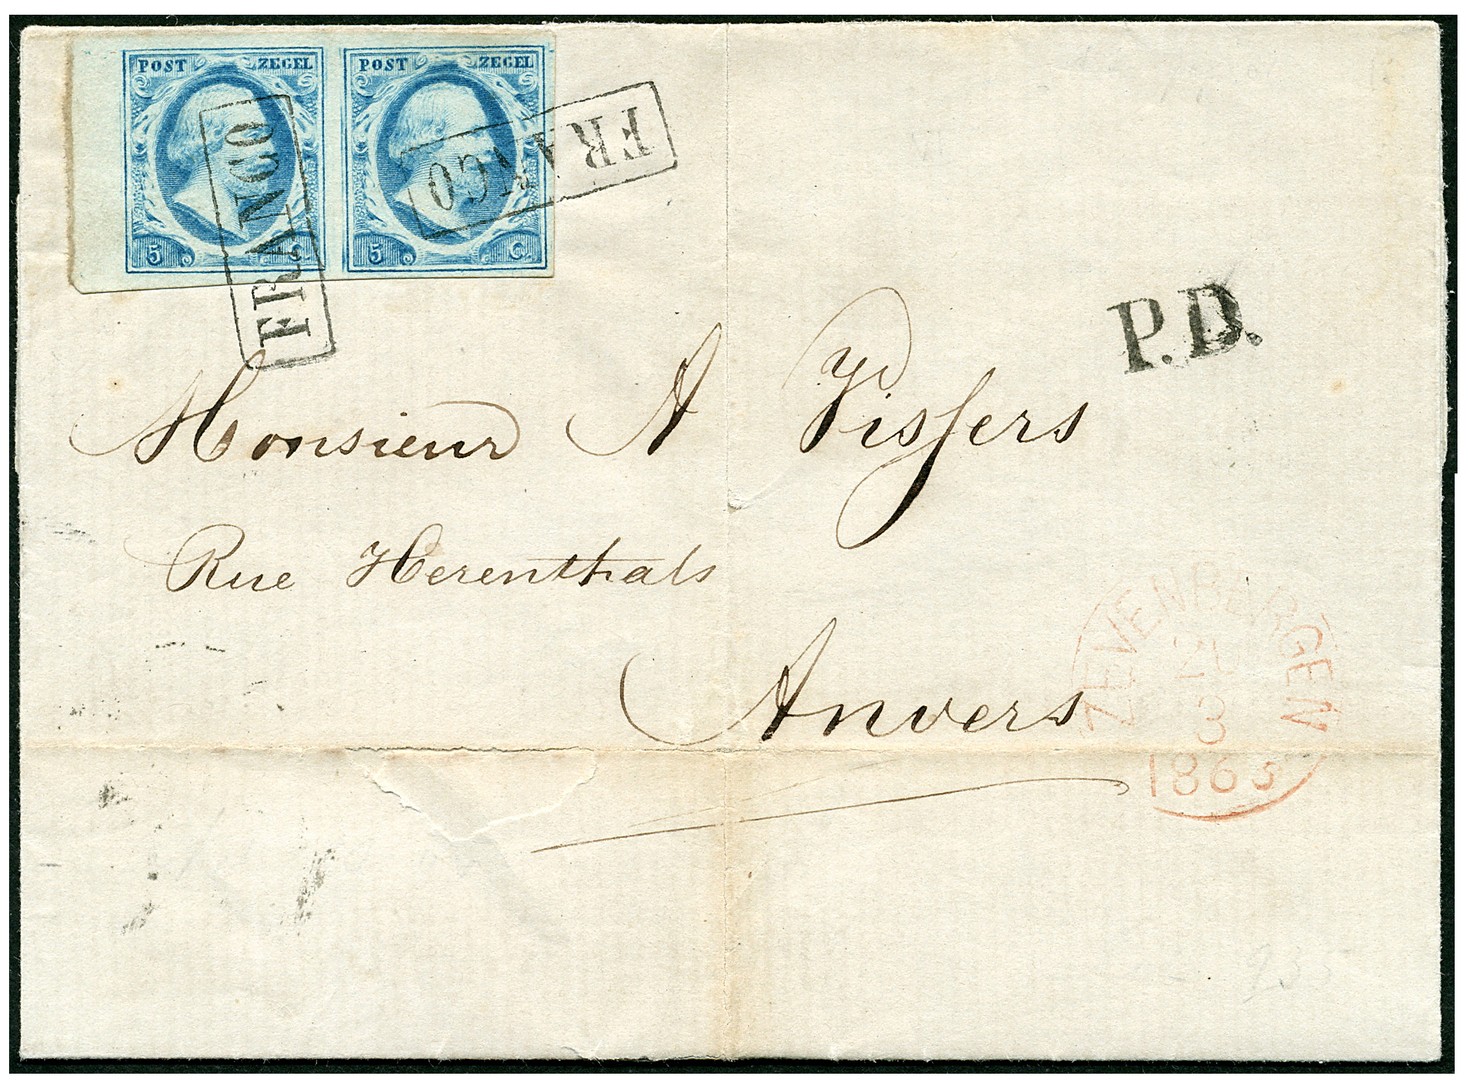 POST ZEGEL POST ZEGEL
FRANCO
FRANCO
5 C. 5 C.
P.D.
Monsieur A Vissers
Rue Herenthals
Anvers
ZEVENBERGEN
20
3
1863
935